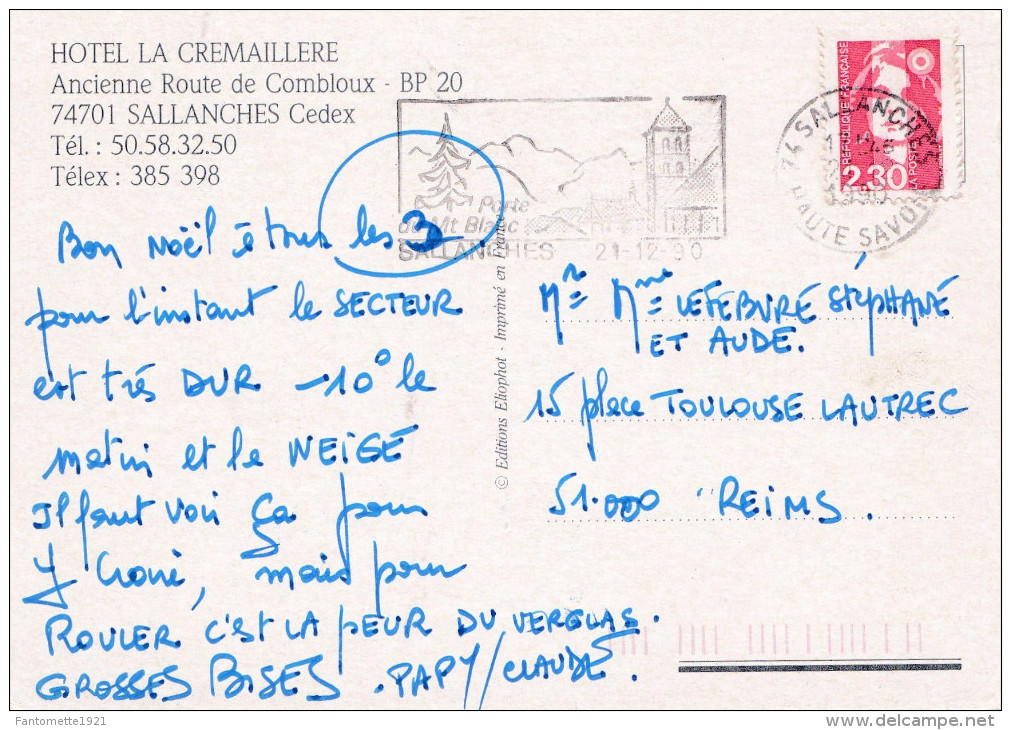 HOTEL LA CREMAILLERE
Ancienne Route de Combloux - BP 20
74701 SALLANCHES Cedex
Tél. : 50.58.32.50
Télex : 385 398
Porte
du Mt Blanc
SALLANCHES 21-12-90
REPUBLIQUE FRANÇAISE
LA POSTE
2,30
74 SALLANCHES
HAUTE SAVOIE
Bon Noël à tous les 3
pour l'instant le SECTEUR
est très DUR -10° le
matin et la NEIGE
Il faut voir ça pour
y croire, mais pour
ROULER c'est LA pEUR DU VERGLAS.
GROSSES BISES. PAPY/CLAUDE.
© Editions Eliophot - Imprimé en France
Mr Mme LEFEBVRE StéPHANE
ET AUDE.
15 place TOULOUSE LAUTREC
51.000 REIMS.
Fantomette1921
delcampe.net